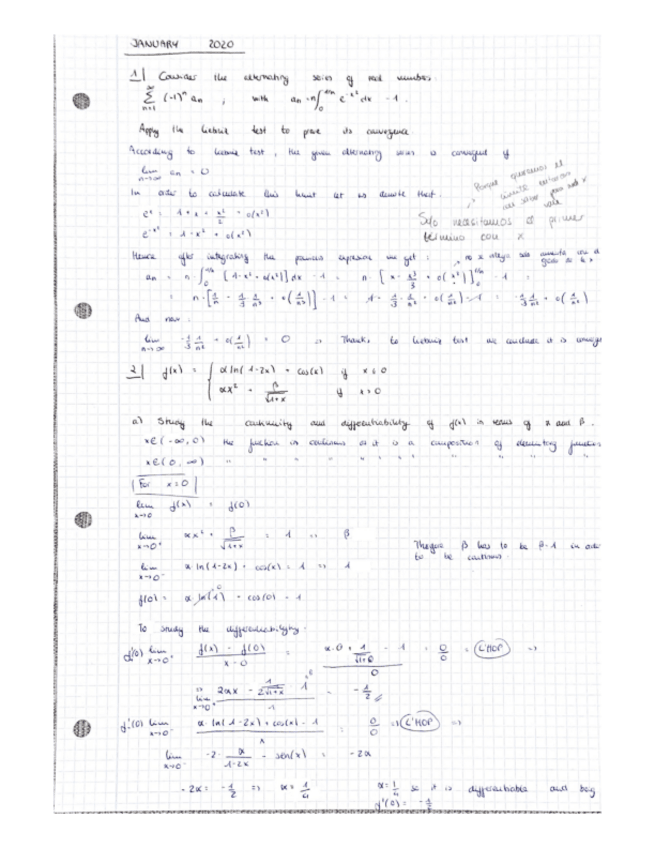 JANUARY 2020
1| Consider the alternating series of real numbers:
∑_{n=1}^{∞} (-1)^n an ; with an = n∫_0^{1/n} e^{-x²} dx - 1.
Apply the Leibniz test to prove its convergence
According to Leibniz test, the given alternating series is convergent if
lim_{n→∞} an = 0
In order to calculate this limit let us denote that:
Porque queremos el
limite entonces
e^x = 1 + x + x²/2 + o(x²)
Solo necesitamos el primer
e^{-x²} = 1 - x² + o(x²)
termino con x
Hence after integrating the previous expression we get:
an = n·∫_0^{1/n} [1 - x² + o(x²)] dx - 1 = n·[x - x³/3 + o(x³)]_0^{1/n} - 1 =
= n·[1/n - 1/3·1/n³ + o(1/n³)] - 1 = 1 - 1/3·1/n² + o(1/n²) - 1 = -1/3 1/n² + o(1/n²)
And now:
lim_{n→∞} -1/3 1/n² + o(1/n²) = 0 ⇒ Thanks to Leibniz test we conclude it is
2| f(x) = { α ln(1-2x) + cos(x) if x ≤ 0
αx² + β/√(1+x) if x > 0
a) Study the continuity and differentiability of f(x) in terms of α and β.
x ∈ (-∞, 0) the function is continuous as it is a composition of elementary functions
x ∈ (0, ∞) " " " " " " " " "
For x = 0
lim_{x→0} f(x) = f(0)
lim_{x→0+} αx² + β/√(1+x) = 1 ⇒ β
Therefore β has to be β=1 in
lim_{x→0-} α ln(1-2x) + cos(x) = 1 ⇒ 1
to be continuous.
f(0) = α ln(1) + cos(0) = 1
To study the differentiability:
f'(0) lim_{x→0+} (f(x) - f(0))/(x - 0) = (α·0 + 1/√(1+0) - 1)/0 = 0/0 = L'HOP ⇒
⇒ lim_{x→0+} (2αx - 1/(2√(1+x)))/1 = -1/2
f'(0) lim_{x→0-} (α·ln(1-2x) + cos(x) - 1)/x = 0/0 ⇒ L'HOP ⇒
lim_{x→0-} -2·α/(1-2x) - sen(x) = -2α
-2α = -1/2 ⇒ α = 1/4
α = 1/4 so it is differentiable and
f'(0) = -1/2